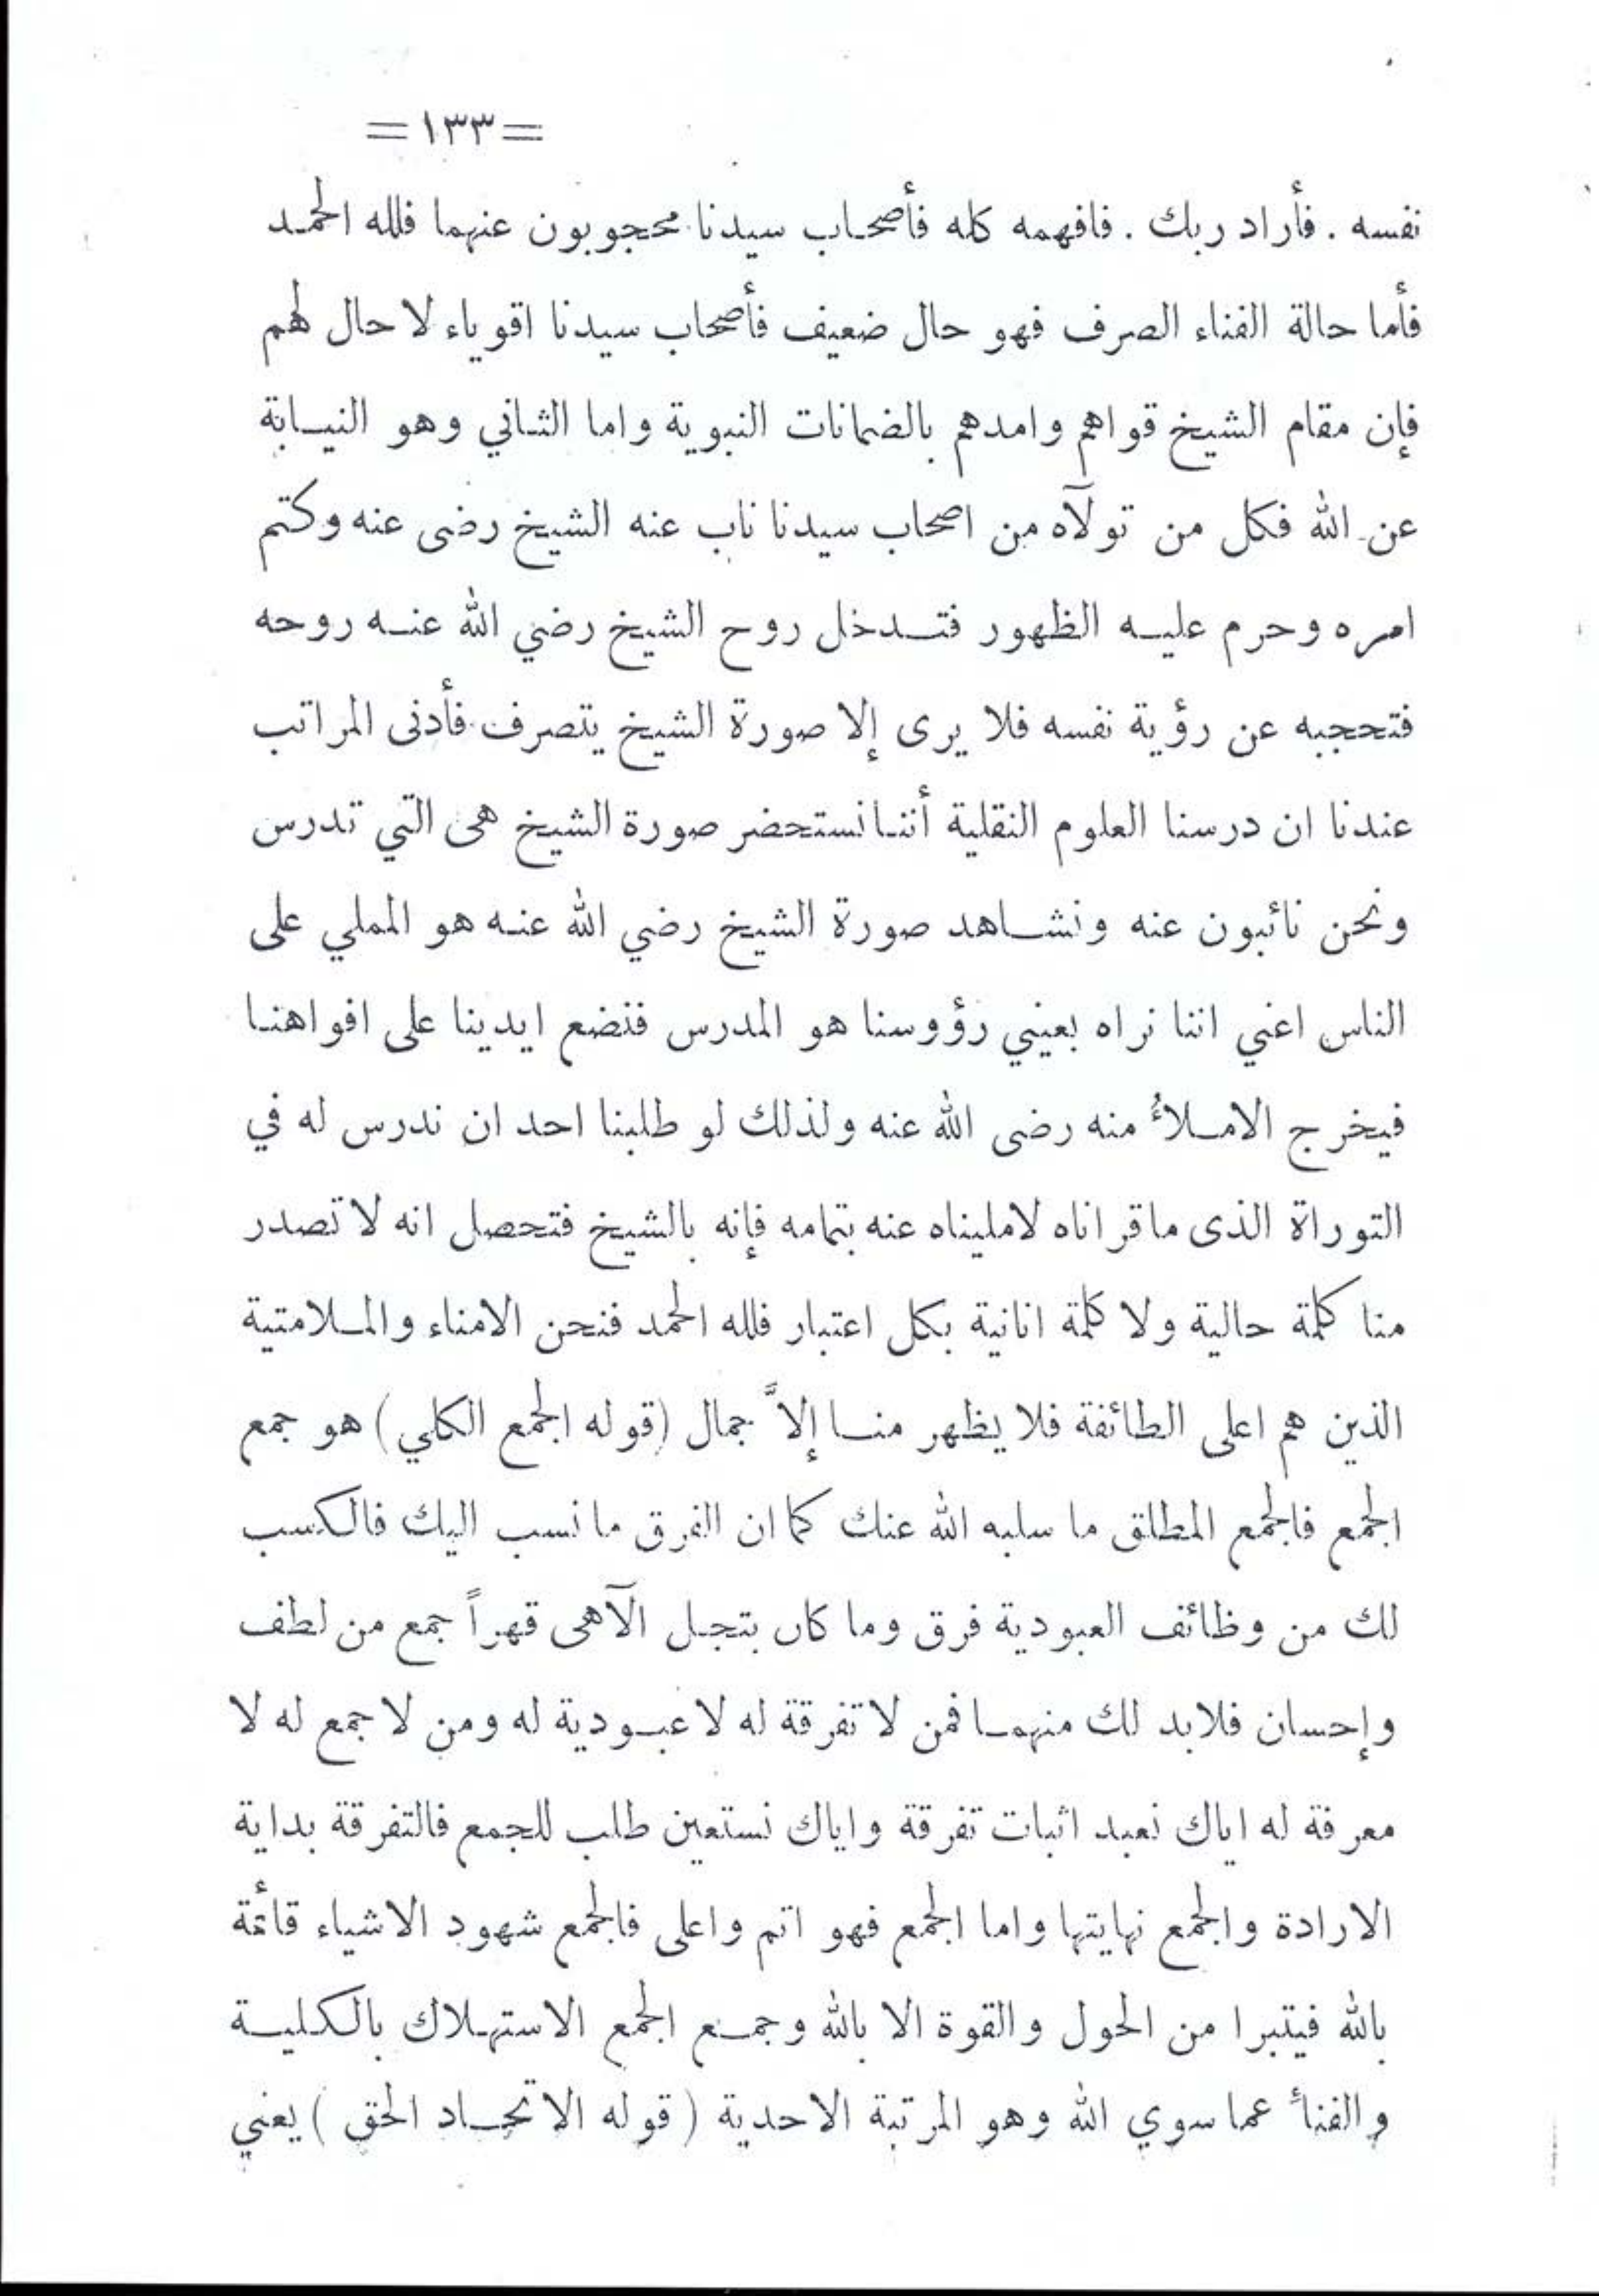 =١٣٣=
نفسه . فأراد ربك . فافهمه كله فأصحاب سيدنا محجوبون عنهما فلله الحمد
فأما حالة الفناء الصرف فهو حال ضعيف فأصحاب سيدنا اقوياء لا حال لهم
فإن مقام الشيخ قواهم وامدهم بالضمانات النبوية واما الثاني وهو النيابة
عن الله فكل من تولآه من اصحاب سيدنا ناب عنه الشيخ رضى عنه وكتم
امره وحرم عليه الظهور فتدخل روح الشيخ رضي الله عنه روحه
فتحجبه عن رؤية نفسه فلا يرى إلا صورة الشيخ يتصرف فأدنى المراتب
عندنا ان درسنا العلوم النقلية أننا نستحضر صورة الشيخ هى التي تدرس
ونحن نائبون عنه ونشاهد صورة الشيخ رضي الله عنه هو المملي على
الناس اعني اننا نراه بعيني رؤوسنا هو المدرس فنضع ايدينا على افواهنا
فيخرج الاملأُ منه رضى الله عنه ولذلك لو طلبنا احد ان ندرس له في
التوراة الذى ماقراناه لامليناه عنه بتمامه فإنه بالشيخ فتحصل انه لا تصدر
منا كلمة حالية ولا كلمة انانية بكل اعتبار فلله الحمد فنحن الامناء والملامتية
الذين هم اعلى الطائفة فلا يظهر منا إلاَّ جمال (قوله الجمع الكلي) هو جمع
الجمع فالجمع المطلق ما سلبه الله عنك كما ان الفرق ما نسب اليك فالكسب
لك من وظائف العبودية فرق وما كان بتجل الآهى قهراً جمع من لطف
وإحسان فلابد لك منهما فمن لا تفرقة له لا عبودية له ومن لا جمع له لا
معرفة له اياك نعبد اثبات تفرقة واياك نستعين طلب للجمع فالتفرقة بداية
الارادة والجمع نهايتها واما الجمع فهو اتم واعلى فالجمع شهود الاشياء قائمة
بالله فيتبرا من الحول والقوة الا بالله وجمع الجمع الاستهلاك بالكلية
والفنأ عما سوي الله وهو المرتبة الاحدية ( قوله الاتحاد الحق ) يعني